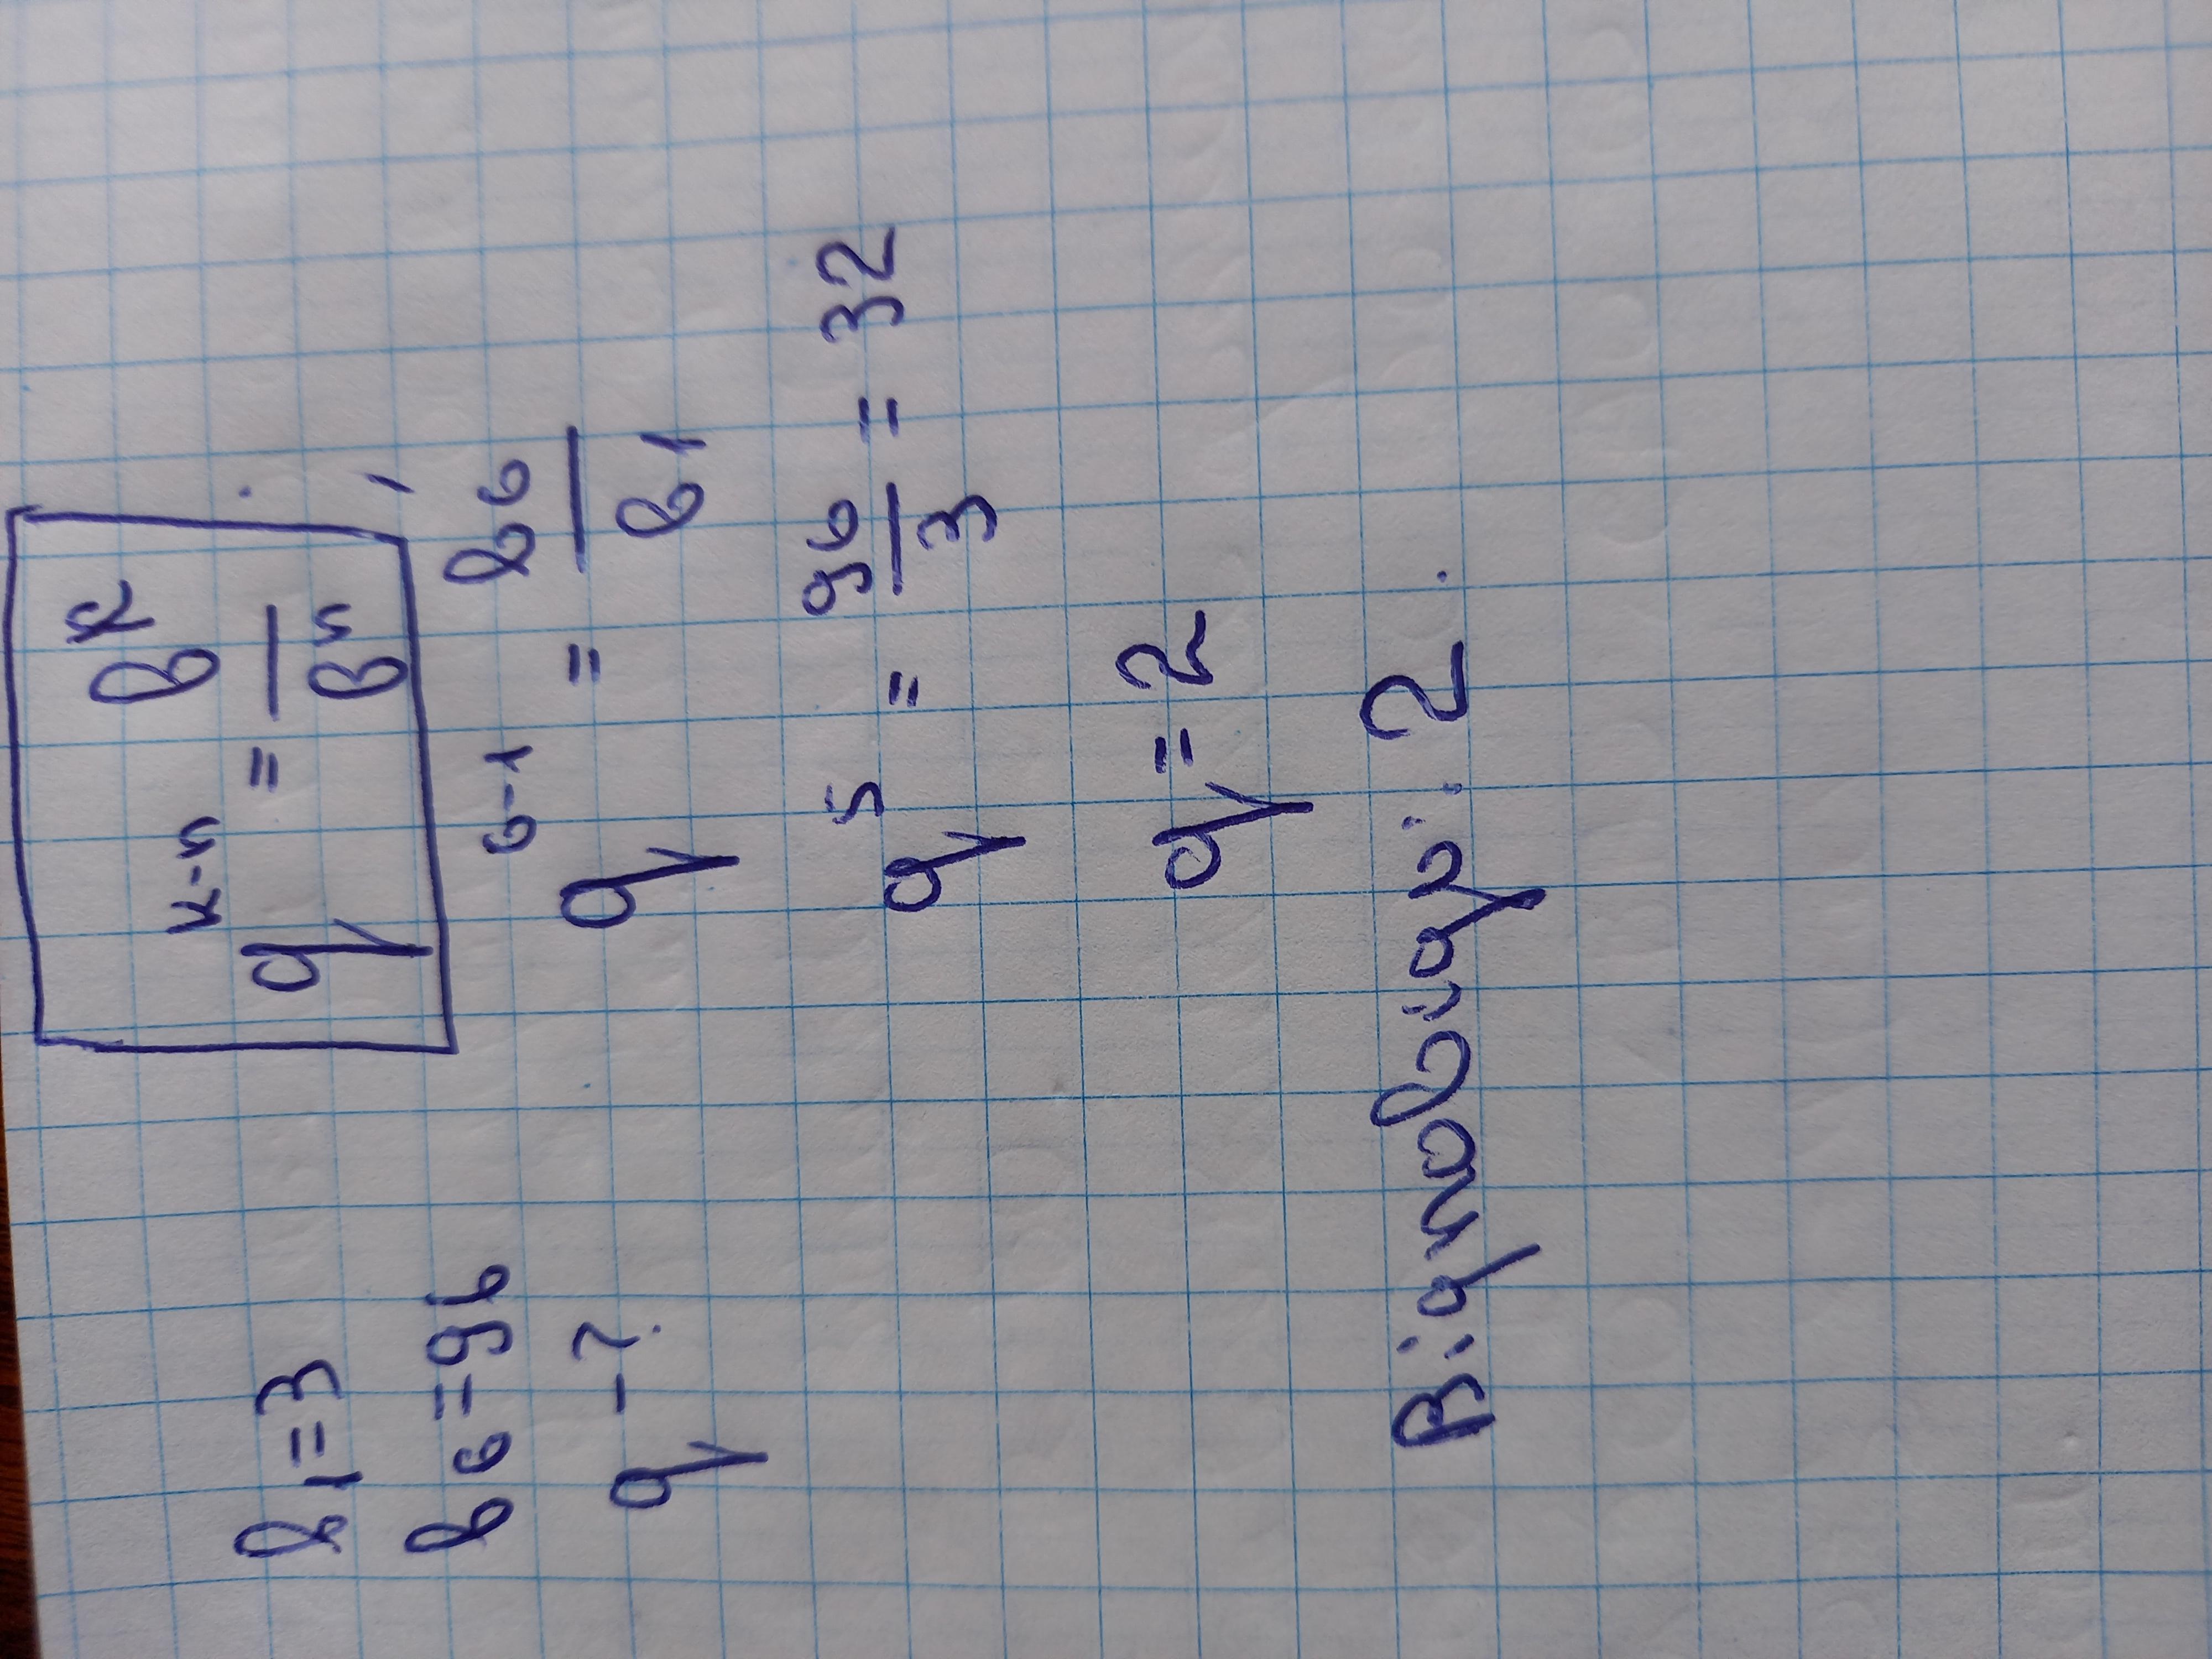 b₁=3
b₆=96
q-?
q^(k-n) = b_k/b_n
q^(6-1) = b₆/b₁
q⁵ = 96/3 = 32
q=2
Відповідь: 2.